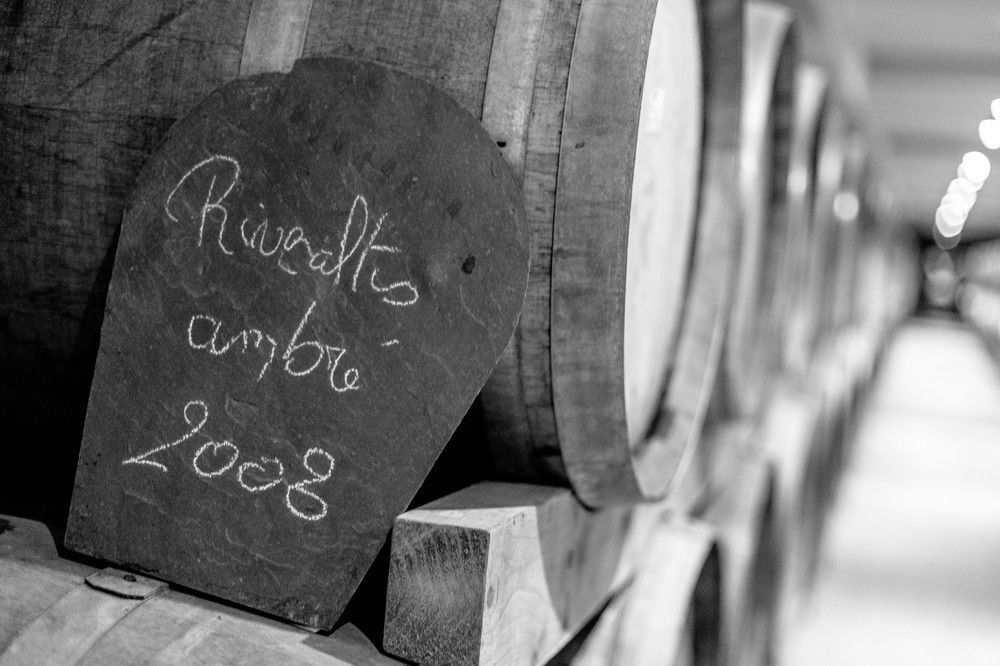 Rivesaltes
ambré
2008